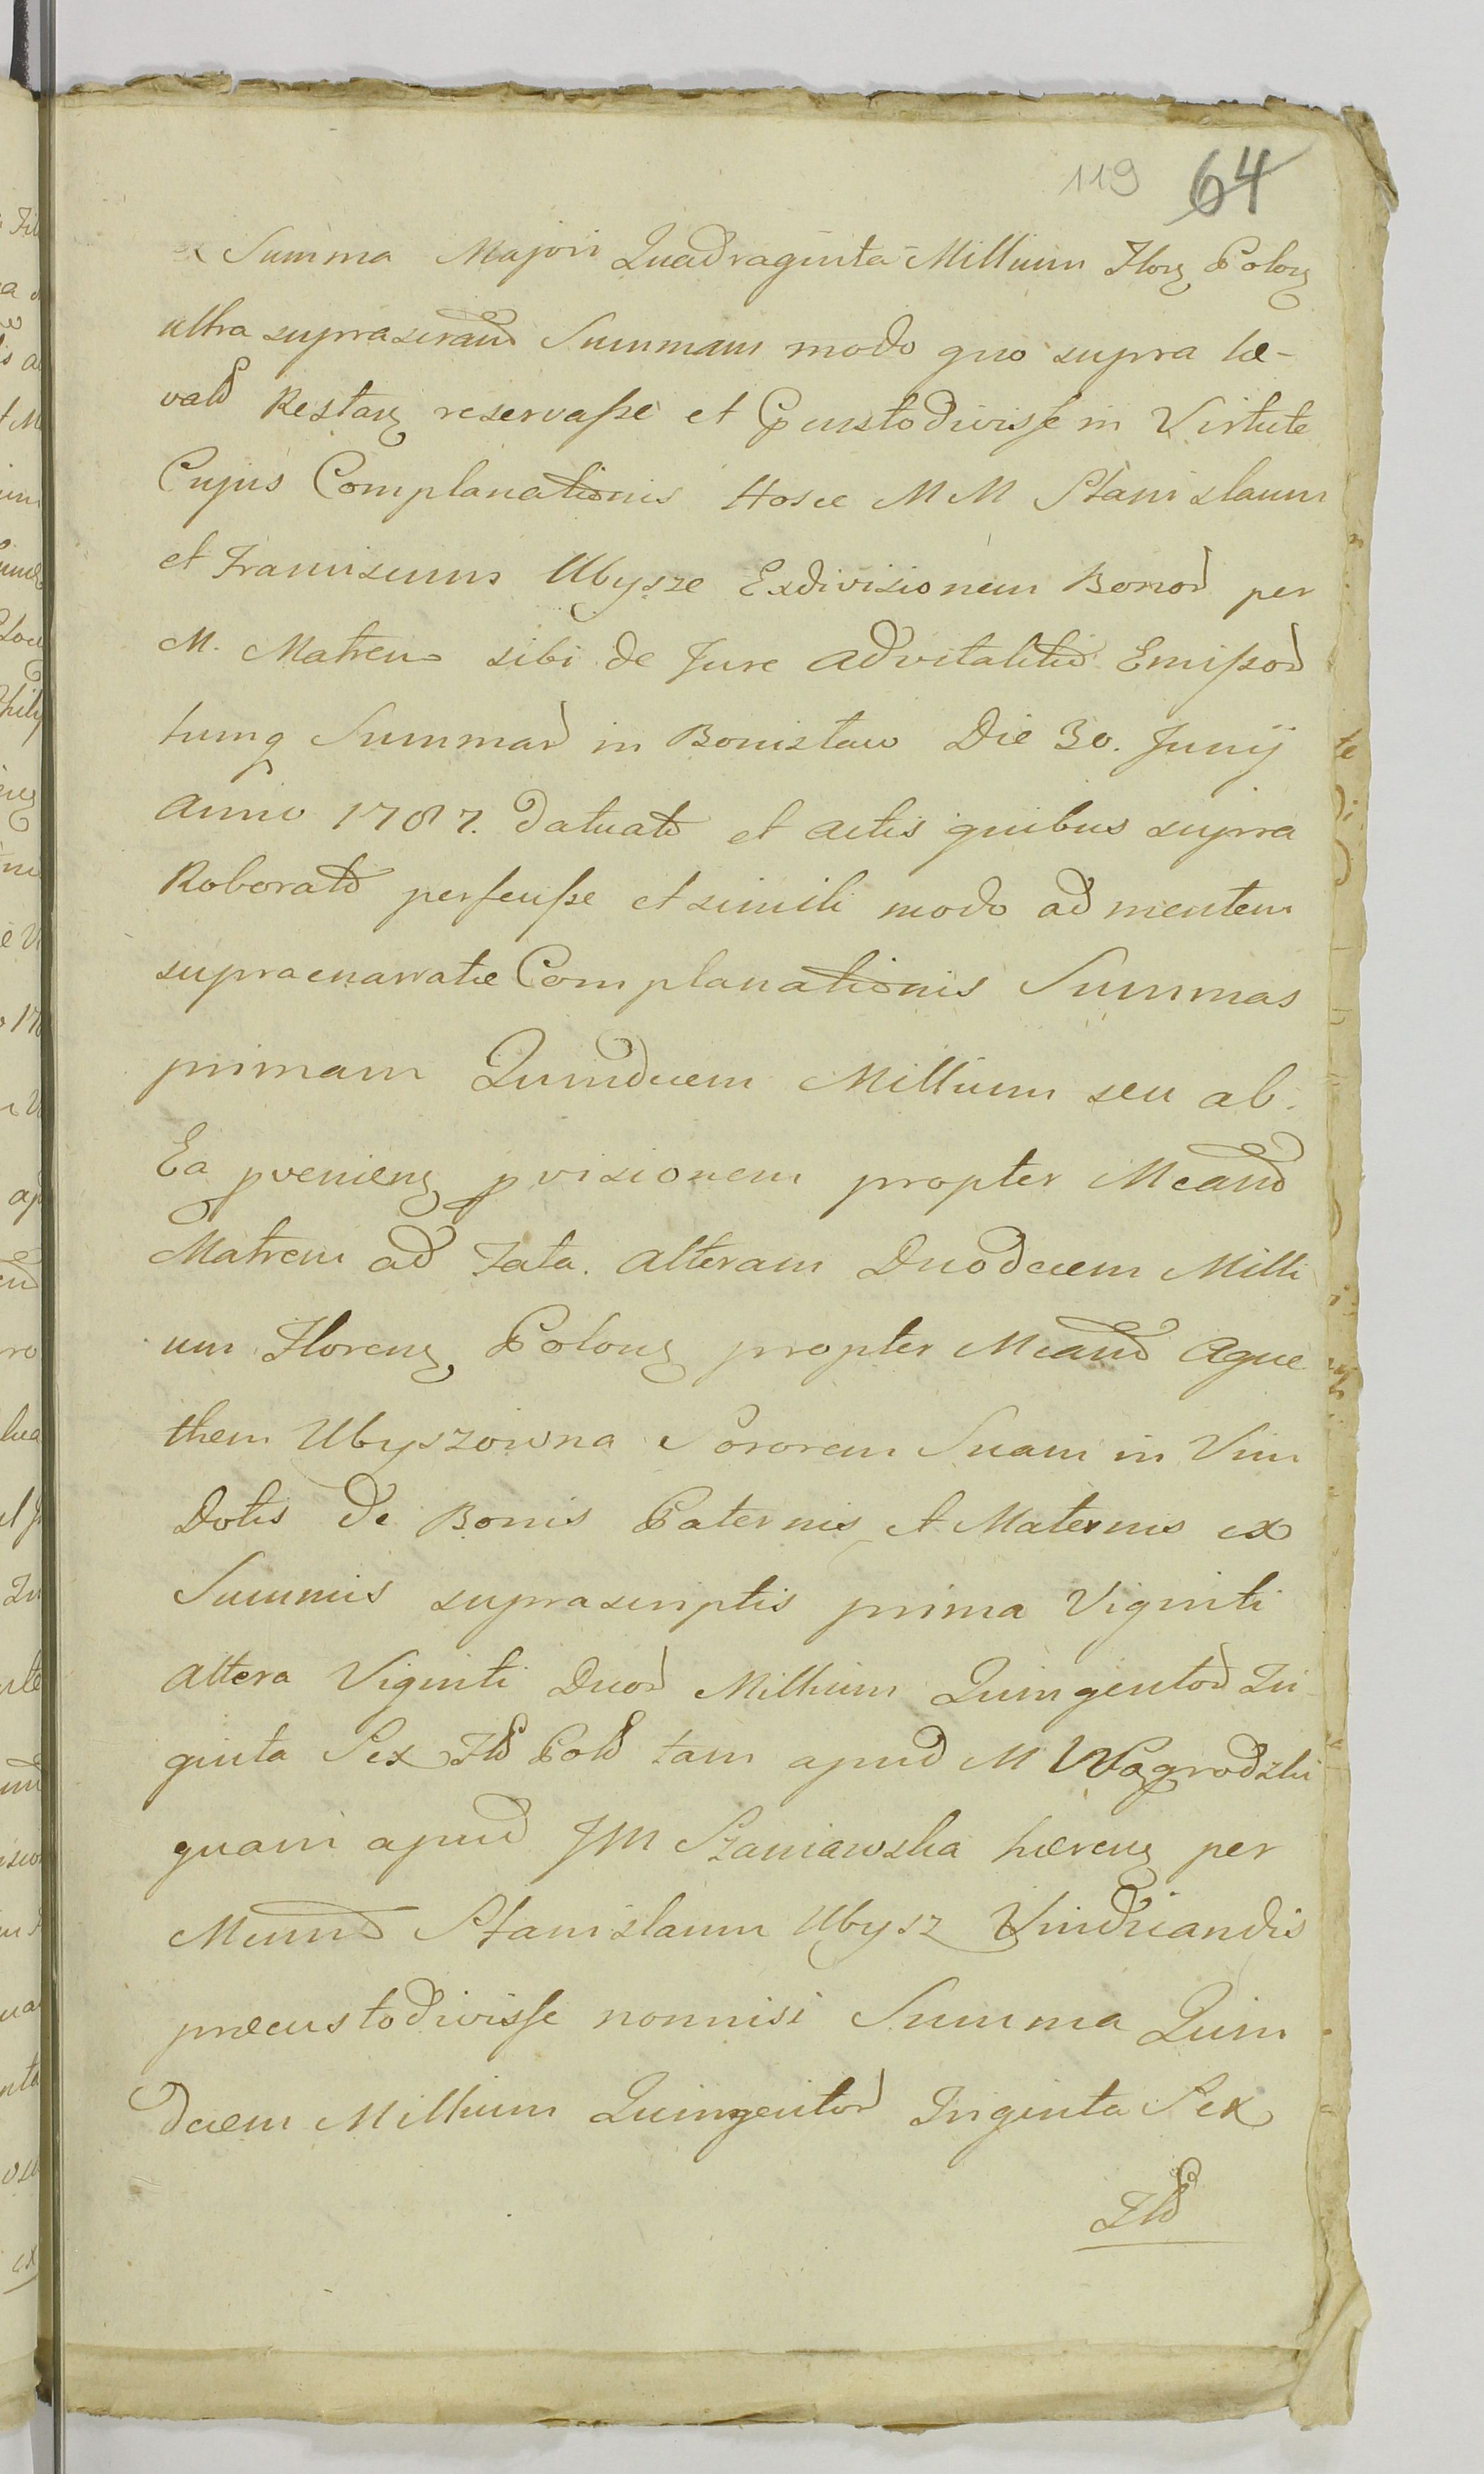 119 64
ex Summa Majori Quadraginta Millium Florz Polorz
ultra suprascrand Summam modo quo supra le-
vatd Restanz reservasse et Pcustodivisse in Virtute
Cujus Complanationis Hosce MM Stanislaum
et Franciscum Ubysze Exdivisionem Bonord per
M. Matrem sibi de Jure advitalitio Emissod
tumq Summard in Bonislaw Die 30. Junij
Anno 1787. datuatd et actis quibus supra
Roboratd perfeusse et simili modo ad mentem
supraenarratæ Complanationis Summas
primam Quindecem Millium seu ab.
Ea pvenienz pvisionem propter Mcand
Matrem ad Fata. alteram Duodecem Milli
um Florenz Polonz propter Mcand Agne
them Ubyszowna Sororem Suam in Vim
Dotis de Bonis Paternis et Maternis ex
Summis suprascriptis prima Viginti
altera Viginti Duod Millium Quingentod Tri-
ginta Sex Fld Pold tam apud M Wagrodzki
quam apud JM Szaniawska hærenz per
Mcumd Stanislaum Ubysz Vindicandis
præcustodivisse nonnisi Summa Quin
decem Millium Quingentod Triginta Sex
Fld